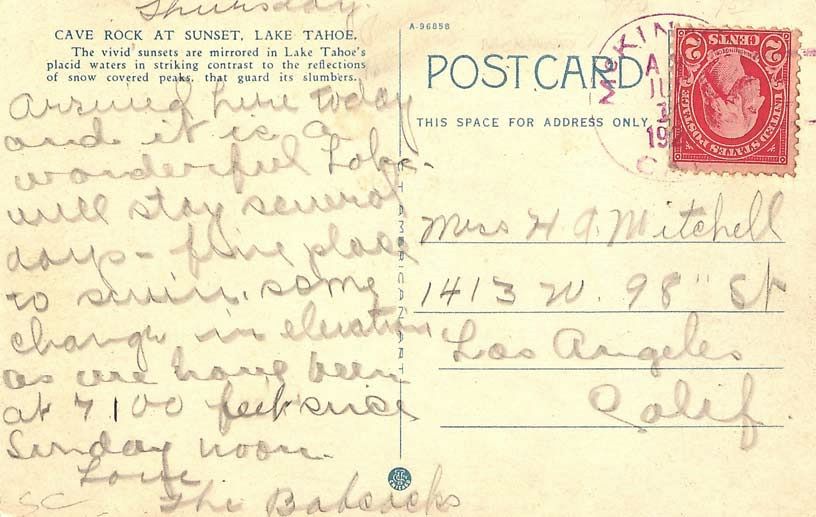 Thursday.
CAVE ROCK AT SUNSET, LAKE TAHOE.
The vivid sunsets are mirrored in Lake Tahoe's
placid waters in striking contrast to the reflections
of snow covered peaks, that guard its slumbers.
Arrived here today
and it is a
wonderful Lake -
will stay several
days - fine place
to swim. some
change in elevation
as we have been
at 7100 feet since
Sunday noon.
Love
The Babcocks
SC
A-96858
POST CARD
THIS SPACE FOR ADDRESS ONLY
McKIN
A
192
C
2 CENTS 2
UNITED STATES POSTAGE
C.T. AMERICAN ART
Miss H A Mitchell
1413 W. 98" St
Los Angeles
Calif.